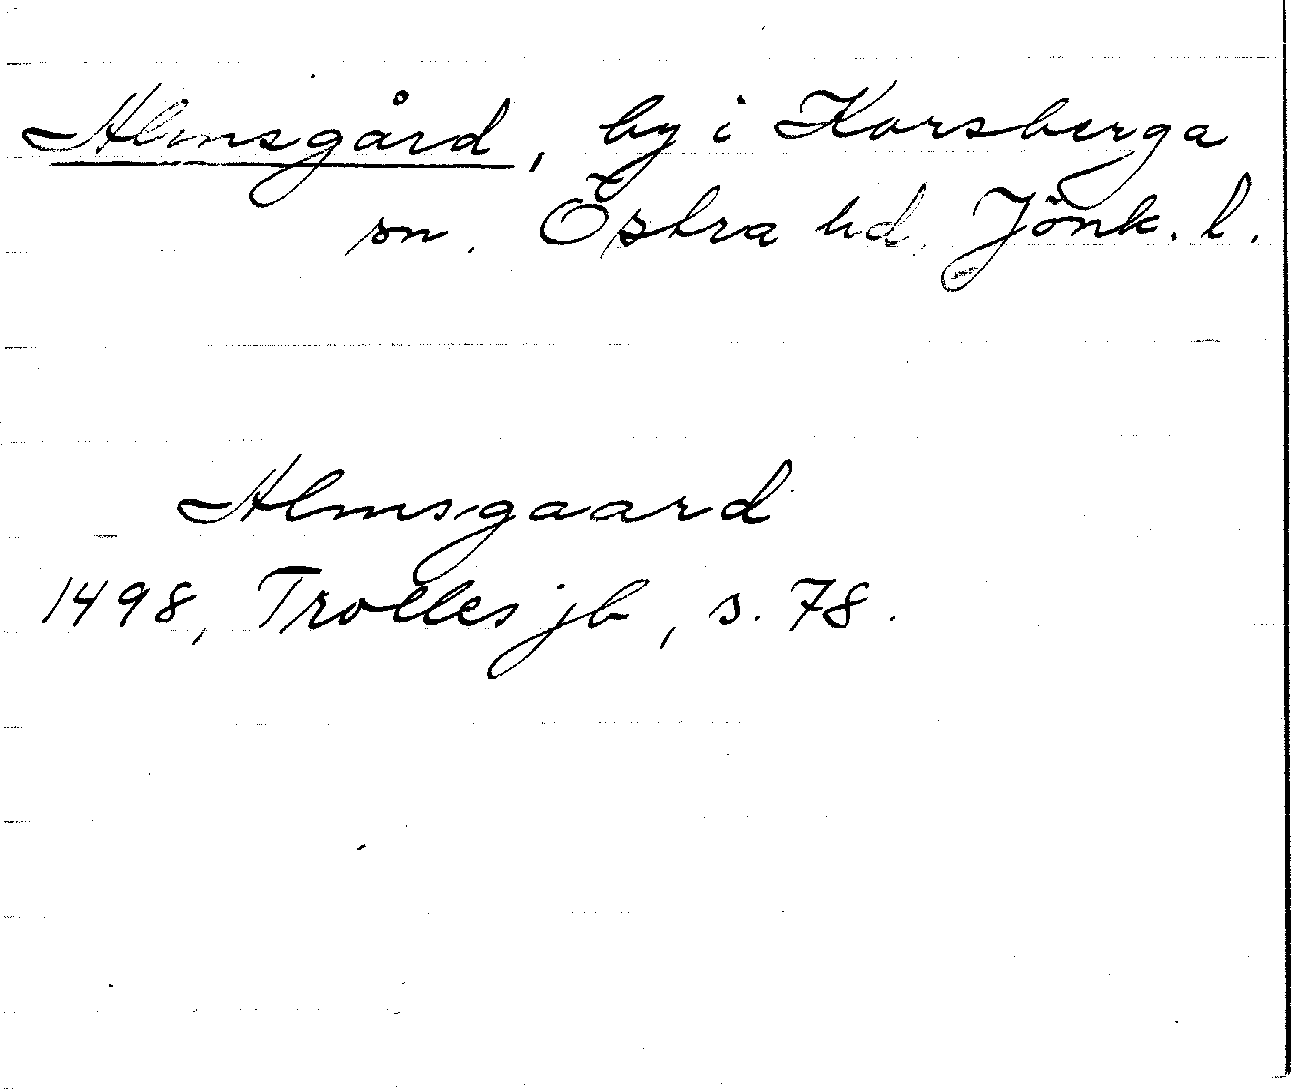 Almsgård, by i Korsberga
sn. Östra hd, Jönk. l.
Almsgaard
1498, Trolles jb, s. 78.